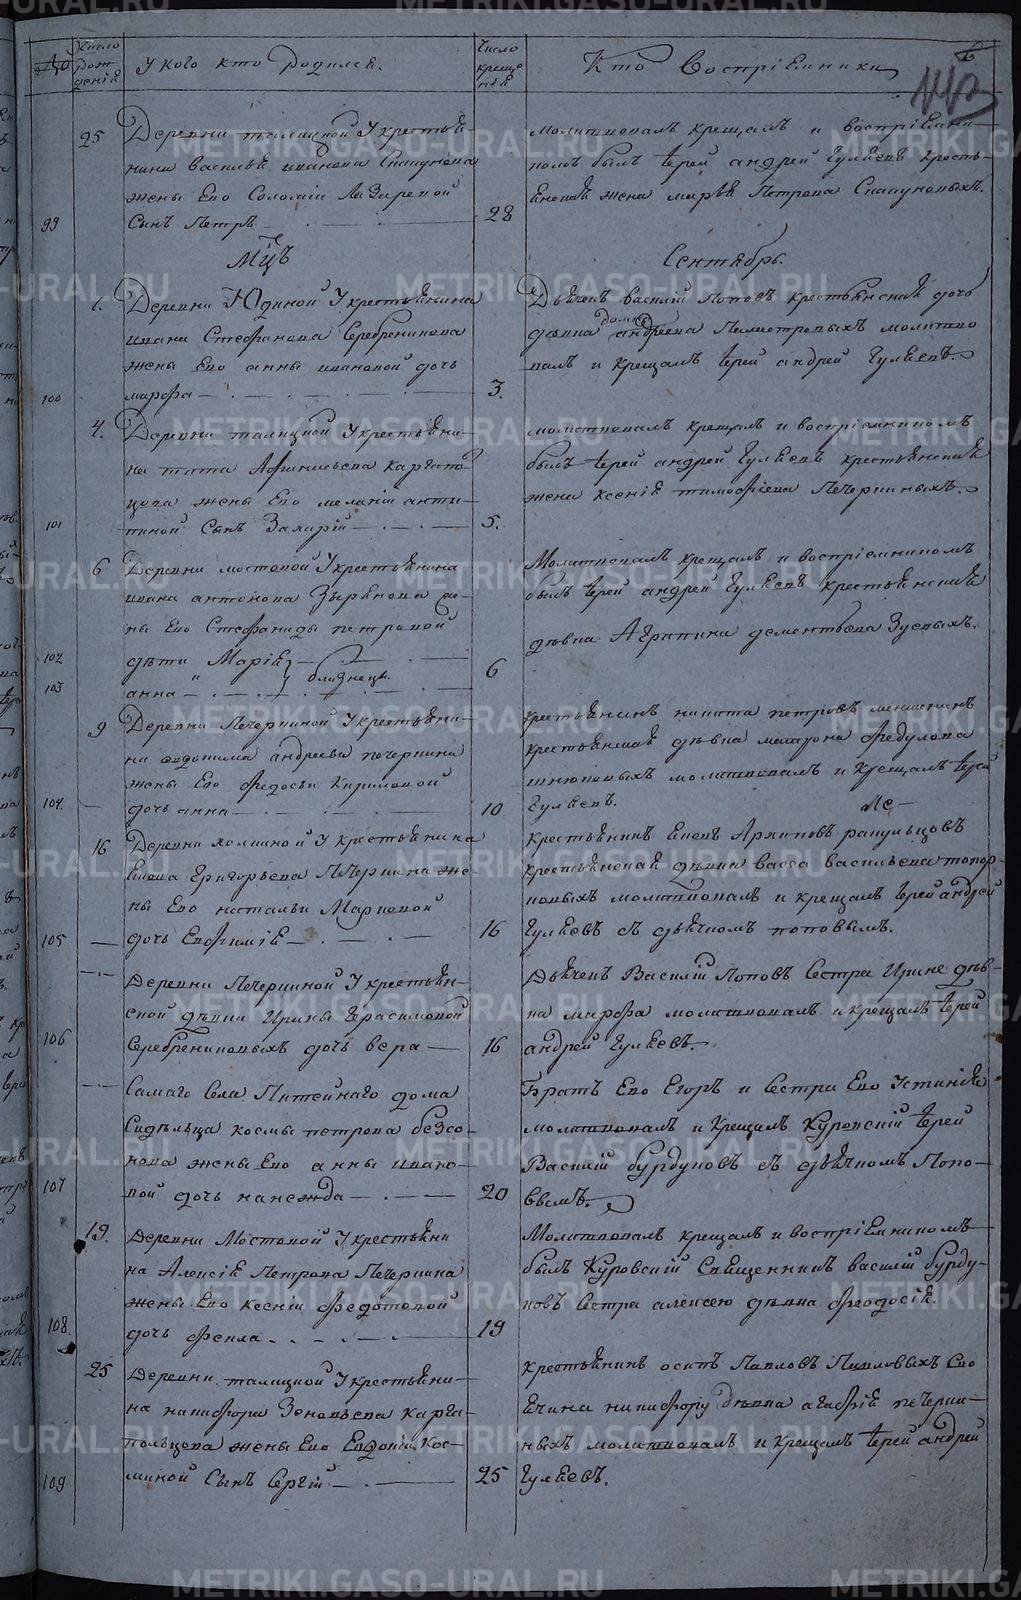 №
Число рождения
У кого кто родился.
Число крещения
Кто восприемники
25
Деревни талицкой У крестья-
нина Василья иванова
жены Его Соломии Лазаревой
99
Сынъ Петръ
28
молитвовалъ крещалъ и воспріемни-
комъ былъ Іерей андрей Гуляевъ кресть-
янская жена марья Петрова
Мцъ
Сентябрь.
1.
Деревни Юдиной У крестьянина
ивана Стефанова Серебреникова
жены Его анны ивановой дочь
100
марфа
3.
Дьячекъ василій Поповъ крестьянская дочь
девка домна андреева молитво
валъ и крещалъ Іерей андрей Гуляевъ.
4.
Деревни талицкой У крестьяни-
на тита Афонасьева Каргопо-
цова жены Его меланіи анти-
101
пиной Сынъ Захарій
5.
молитвовалъ крещалъ и воспріемникомъ
былъ Іерей андрей Гуляевъ крестьянская
жена ксенія тимофіева Печеркиныхъ.
6
Деревни мостовой У крестьянина
ивана антонова Зырянова же-
ны Его Стефаниды петровой
102
дѣти Марія
103
анна
близнецы.
6
Молитвовалъ крещалъ и воспріемникомъ
былъ Іерей андрей Гуляевъ крестьянская
дѣвка Агрипина дементьева Зуевыхъ.
9
Деревни Печеркиной У крестьяни-
на андреева печеркина
жены Его федосьи Кириловой
104
дочь анна
10
крестьянинъ никита петровъ меншенинъ
крестьянская дѣвка матрона Федулова
молитвовалъ и крещалъ Іерей
Гуляевъ.
16
Деревни У крестьянина
Григорьева Печеркина же
ны Его натальи Марковой
105
дочь Евфимія
16
крестьянинъ Архиповъ
крестьянская дѣвка васса васильева топор-
ковыхъ молитвовалъ и крещалъ Іерей андрей
Гуляевъ съ дьячкомъ поповымъ.
Деревни Печеркиной У крестьян-
ской дѣвки Ирины Герасимовой
106
Серебрениковыхъ дочь вера
16
Дьячекъ Василій Поповъ Сестра Ирине дѣв-
ка марфа молитвовалъ и крещалъ Іерей
андрей Гуляевъ.
Самаго Села Питейнаго дома
Сидѣльца космы петрова безсо-
нова жены Его анны ивано-
107
вой дочь надежда
20
Братъ Его Егоръ и Сестра Его Устинія
молитвовалъ и крещалъ Куровскій Іерей
Василій бурдуковъ съ дьячкомъ Попо-
вымъ.
19.
Деревни Мостовой У крестьяни
на Алексія Петрова Печеркина
жены Его ксеніи федотовой
108
дочь фекла
19
Молитвовалъ крещалъ и воспріемникомъ
былъ Куровскій Священникъ василій бурду-
ковъ Сестра алексею дѣвка феодосія.
25
Деревни талицкой У крестьяни-
на никифора Зиновьева Карго-
польцова жены Его Евдокіи Кос-
109
миной Сынъ Сергій
25
крестьянинъ осипъ Павловъ Павловыхъ Сво
ячина никифору дѣвка агафія печерки-
ныхъ молитвовалъ и крещалъ Іерей андрей
Гуляевъ.
METRIKI.GASO-URAL.RU